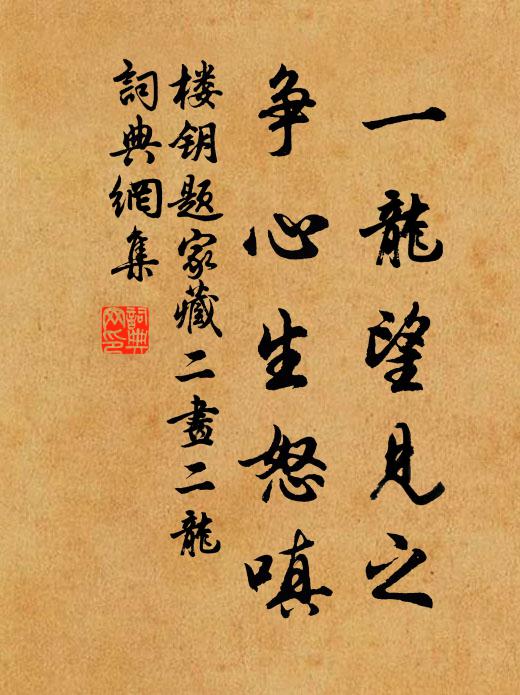 一龍望見之
争心生怒嗔
楼钥题家藏二畫二龍
詞典網集
詞典网印